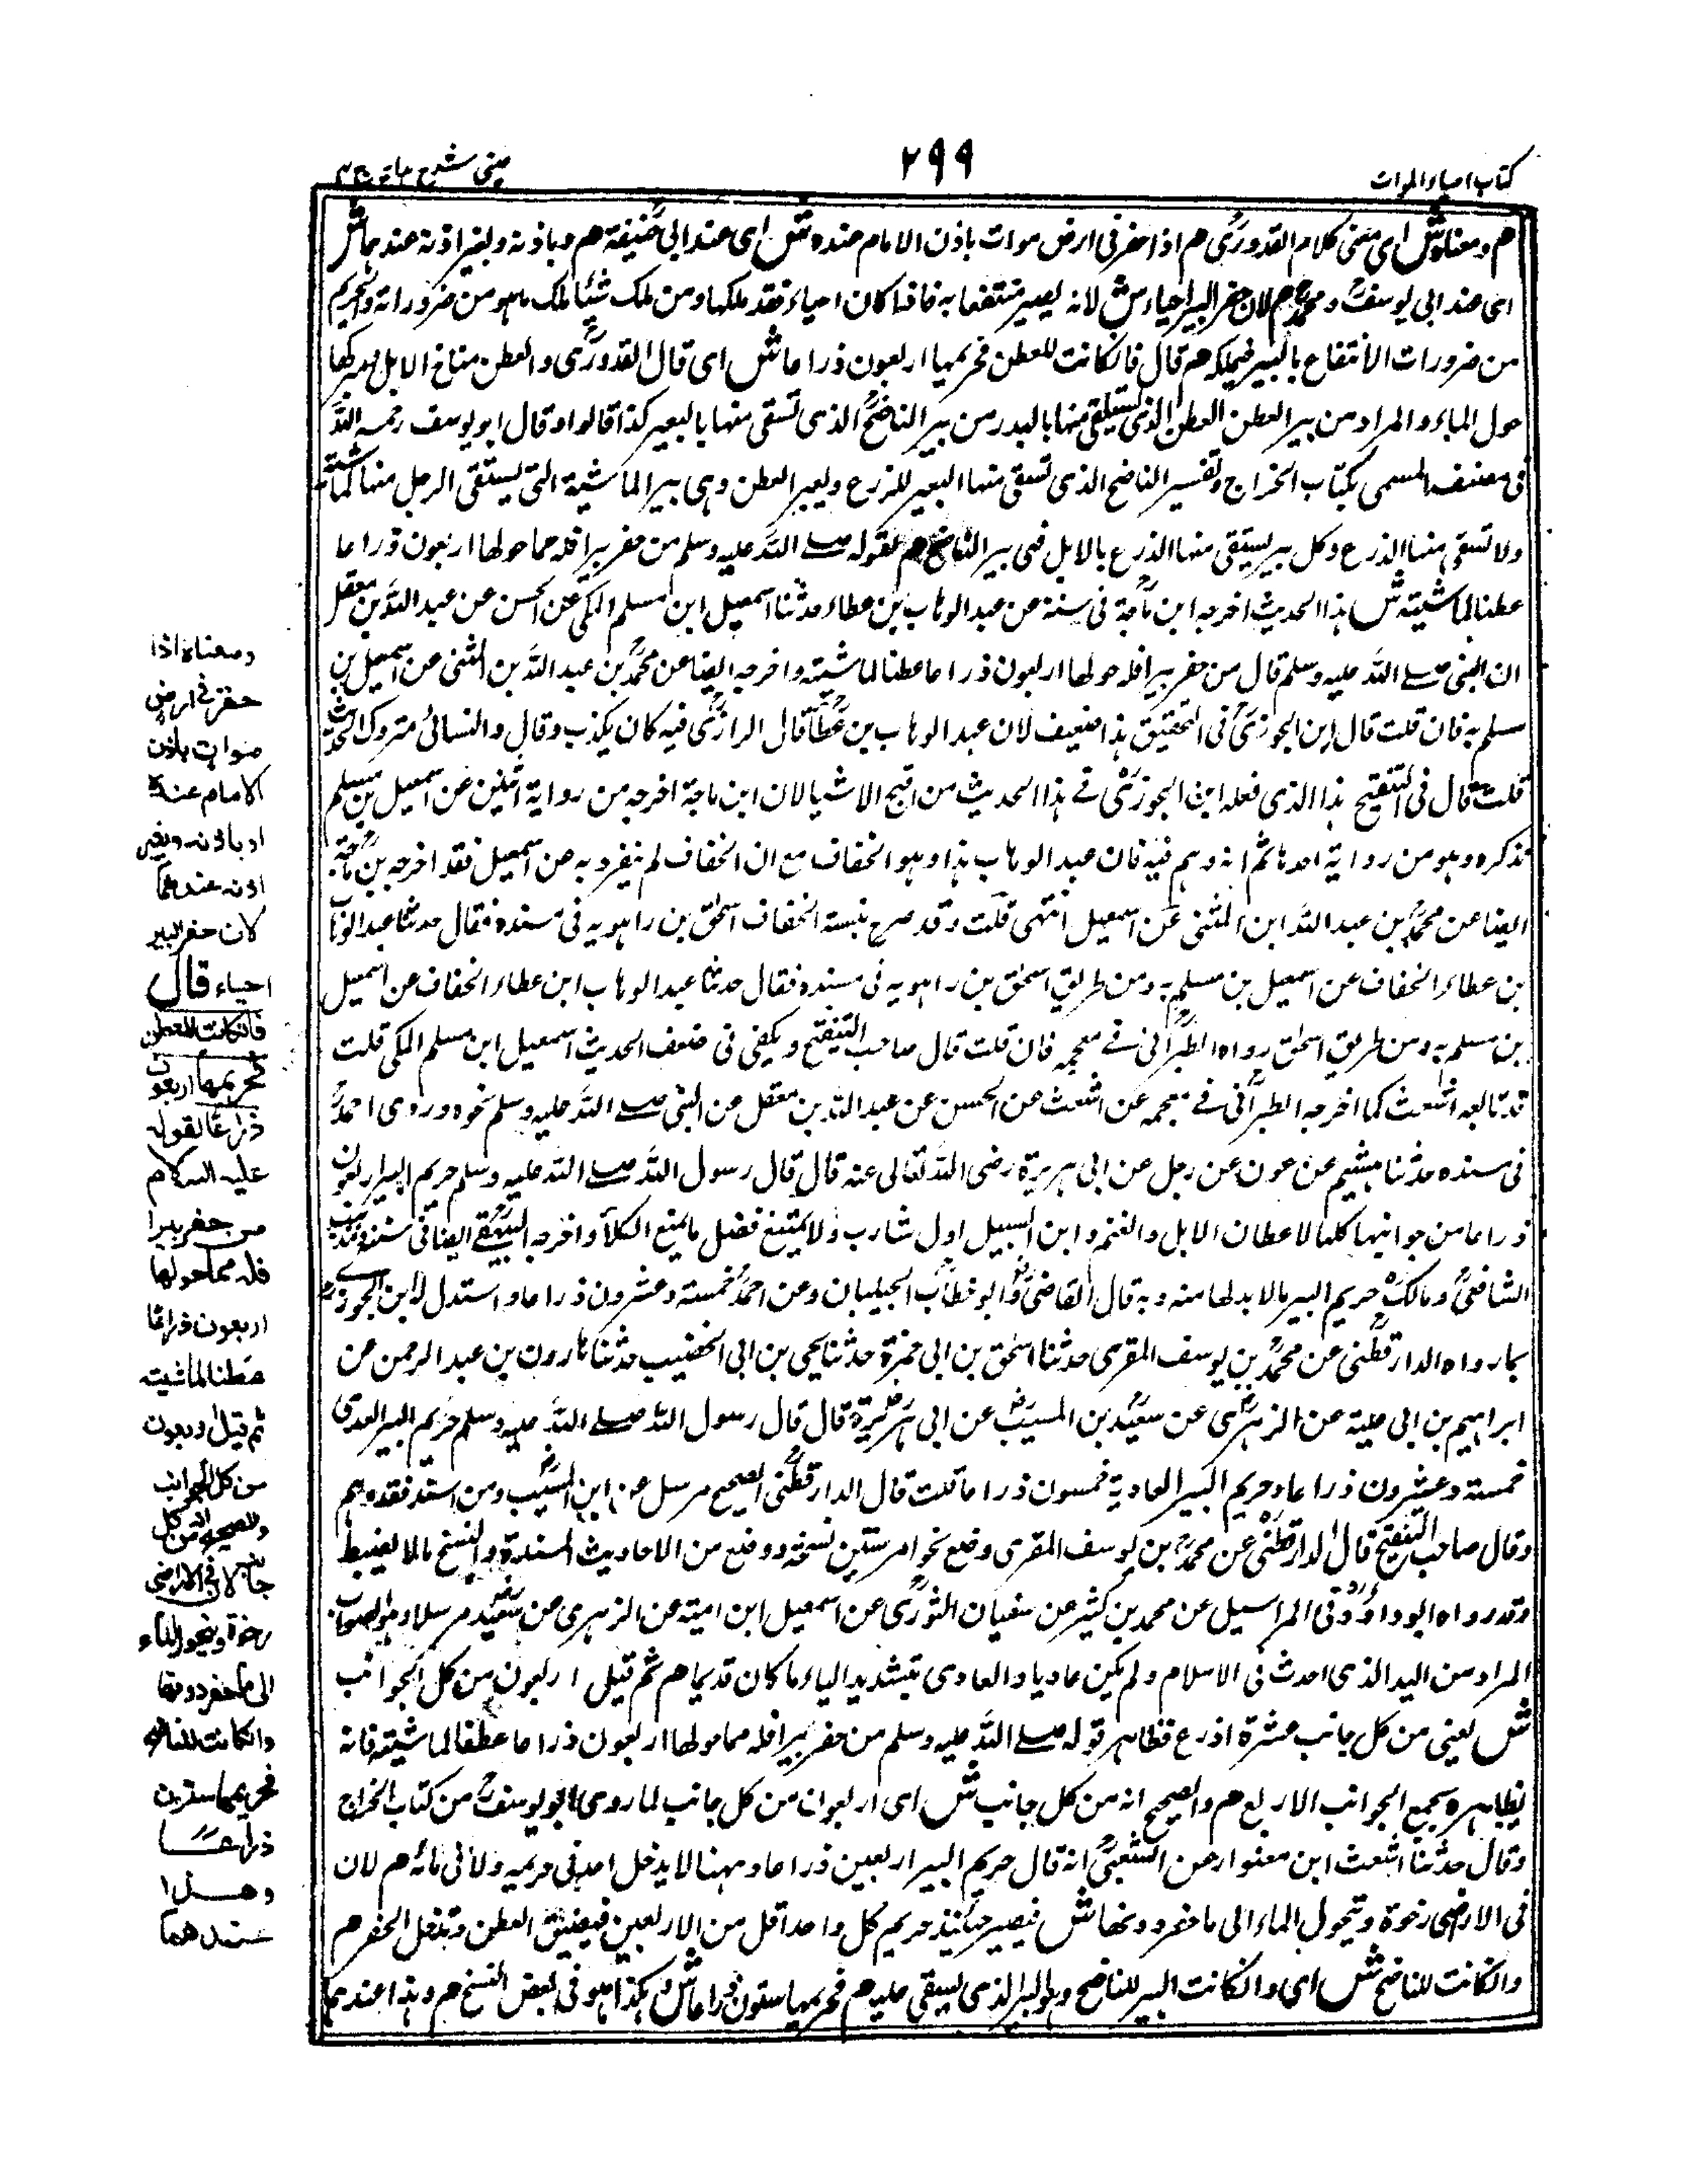 كتاب احياء الموات
٢٩٩
عينى شرح هداية ج ٣
هم ومعناه ش اى معنى كلام القدورى هم اذا حفر فى ارض موات باذن الامام عنده ش اى عند ابى حنيفة هم وباذنه وبغير اذنه عندهما ش
اى عند ابى يوسف ومحمد هم لان حفر البير احياء ش لانه يصير منتفعا به فاذا كان احياء فقد ملكها ومن ملك شئا ملك ماهو من ضروراته والحريم
من ضرورات الانتفاع بالبير فيملكه هم قال فانكانت للعطن فحريمها اربعون ذراعا ش اى قال القدورى والعطن مناخ الابل ومبركها
حول الماء والمراد من بير العطن العطن الذى يستقى منها باليد ومن بير الناضح الذى تسقى منها بالبعير كذا قالوا وقال ابو يوسف رحمه الله
فى مصنفه المسمى بكتاب الخراج وتفسير الناضح الذى تسقى منها البعير للزرع وبير العطن وهى بير الماشية التى يستقى الرجل منها لماشيته
ولا تسقى منها الزرع وكل بير يستقى منها الزرع بالابل فهى بير الناضح هم لقوله صلے الله عليه وسلم من حفر بيرا فله مما حولها اربعون ذراعا
عطنا لماشيته ش هذا الحديث اخرجه ابن ماجة فى سننه عن عبد الوهاب بن عطاء حدثنا اسمعيل ابن مسلم المكى عن الحسن عن عبد الله بن مغفل
ان النبى صلے الله عليه وسلم قال من حفر بيرا فله حولها اربعون ذراعا عطنا لماشيته واخرجه ايضا عن محمد بن عبد الله بن المثنى عن اسمعيل بن
مسلم به فان قلت قال ابن الجوزى فى التحقيق هذا ضعيف لان عبد الوهاب بن عطا قال الرازى فيه كان يكذب وقال والنسائى متروك الحديث
قلت قال فى التنقيح هذا الذى فعله ابن الجوزى فے هذا الحديث من اقبح الاشيا لان ابن ماجة اخرجه من رواية اثنين عن اسمعيل بن مسلم
فذكره هو من رواية احدهما ثم انه وهم فيه فان عبد الوهاب هذا هو الخفاف مع ان الخفاف لم ينفرد به عن اسمعيل فقد اخرجه بن ماجة
ايضا عن محمد بن عبد الله ابن المثنى عن اسمعيل انتهى قلت وقد صرح بنسبة الخفاف اسحق بن راهويه فى مسنده فقال حدثنا عبد الوهاب
بن عطاء الخفاف عن اسمعيل بن مسلم به ومن طريق اسحق بن راهويه فى مسنده فقال حدثنا عبد الوهاب ابن عطاء الخفاف عن اسمعيل
بن مسلم به ومن طريق اسحق رواه الطبرانى فے معجمه فان قلت قال صاحب التنقيح ويكفى فى ضعف الحديث اسمعيل ابن مسلم المكى قلت
قد تابعه اشعث كما اخرجه الطبرانى فے معجمه عن اشعث عن الحسن عن عبد الله بن مغفل عن النبى صلے الله عليه وسلم نحوه وروى احمد
فى مسنده حدثنا هشيم عن عون عن رجل عن ابى هريرة رضى الله تعالى عنه قال قال رسول الله صلے الله عليه وسلم حريم البير اربعون
ذراعا من جوانبها كلها لاعطان الابل والغنم وابن السبيل اول شارب ولا يمنع فضل ما يمنع الكلأ واخرجه البيهقے ايضا فى سننه ومذهب
الشافعى ومالك حريم البير مالا بد لها منه وبه قال القاضى وابو خطاب الحبليان وعن احمد خمسة وعشرون ذراعا واستدل لابن الجوزے
بما رواه الدارقطنى عن محمد بن يوسف المقرى حدثنا اسحق بن ابى حمزة حدثنا يحى بن ابى الخصيب حدثنا هارون بن عبد الرحمن عن
ابراهيم بن ابى علية عن الزهرى عن سعيد بن المسيب عن ابى هريرة قال قال رسول الله صلے الله عليه وسلم حريم البير البدى
خمسة وعشرون ذراعا وحريم البير العادية خمسون ذراعا قلت قال الدارقطنى الصحيح مرسل عن ابن المسيب ومن اسنده فقد وهم
وقال صاحب التنقيح قال الدارقطنى عن محمد بن يوسف المقرى وضع نحوا من ستين نسخة ووضع من الاحاديث المسندة والنسخ مالا يضبط
وقد رواه ابو داؤد فى المراسيل عن محمد بن كثير عن سفيان الثورى عن اسمعيل ابن امية عن الزهرى عن سعيد مرسلا وهو الصواب
المراد من البدى الذى احدث فى الاسلام ولم يكن عاديا والعادى بتشديد الياء ما كان قديما هم ثم قيل اربعون من كل الجوانب
ش يعنى من كل جانب عشرة اذرع فظاهر قوله صلے الله عليه وسلم من حفر بيرا فله مما حولها اربعون ذراعا عطنا لماشيته فانه
بظاهره بجمع الجوانب الاربع هم والصحيح انه من كل جانب ش اى اربعون من كل جانب لما روى ابو يوسف من كتاب الخراج
وقال حدثنا اشعث ابن سوار عن الشعبى انه قال حريم البير اربعين ذراعا وههنا لا يدخل احد فى حريمه ولا فى مائه هم لان
فى الارضى رخوة ويتحول الماء الى ما حفر دونها ش فيصير حينئذ حريم كل واحد اقل من الاربعين فيضيق العطن وتدخل الحفر هم
وانكانت للناضح ش اى وانكانت البير للناضح وهو البير الذى يسقى عليه هم فحريمها ستون ذراعا ش هكذا هو فى بعض النسخ هم وهذا عندهما
ومعناه اذا
حفر فے ارض
موات باذن
الامام عنده
او باذنه وبغير
اذنه عندهما
لان حفر البير
احياء قال
فانكانت للعطن
فحريمها اربعون
ذراعا لقوله
عليه السلام
من حفر بيرا
فله مما حولها
اربعون ذراعا
عطنا لماشيته
ثم قيل اربعون
من كل الجوانب
والصحيح انه من كل
جانب لان فى الاراضى
رخوة ويتحول الماء
الى ما حفر دونها
وانكانت للناضح
فحريمها ستون
ذراعا
وهذا
عندهما